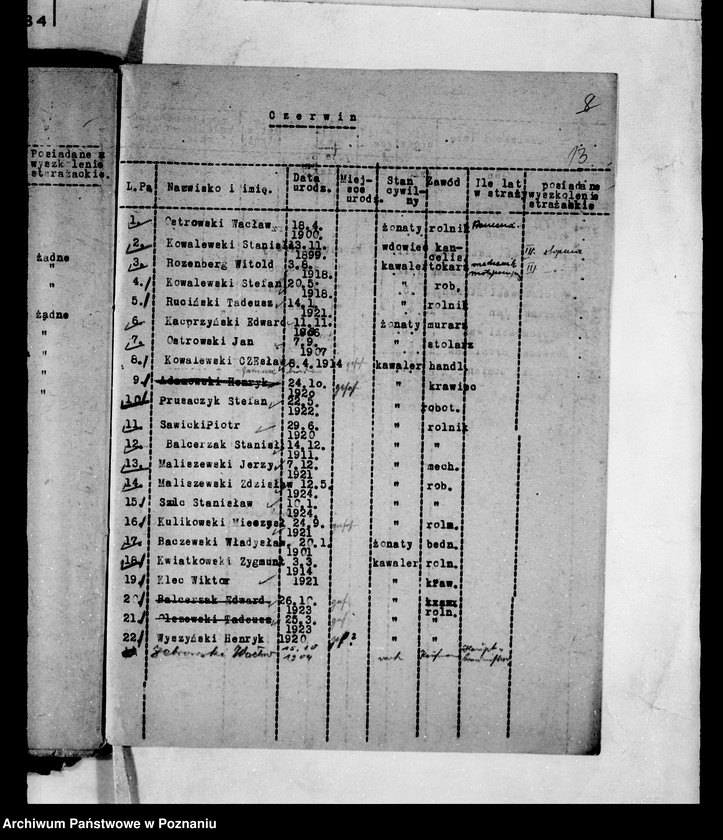 34
8
13
C z e r w i n
Posiadane
wyszkolenie
strażackie.
żadne
"
"
żądne
"
"
"
"
L.P. Nazwisko i imię. Data urodz. Miejsce urodz. Stan cywilny Zawód Ile lat w straży posiadane wyszkolenie strażackie
1. Ostrowski Wacław 18.4. 1900. żonaty rolnik
2. Kowalewski Stanisła 13.11. 1899. wdowiec kancelis. III. stopnia
3. Rozenberg Witold 3.8. 1918. kawaler tokarz mechanik III
4. Kowalewski Stefan 20.5. 1918. " rob.
5. Ruciński Tadeusz 14.1. 1921. " rolnik
6. Kacprzyński Edward 11.11. żonaty murarz
7. Ostrowski Jan 7.9. 1907 " stolarz
8. Kowalewski CZEsław 8.4.1914 kawaler handl.
9. Adamowski Henryk 24.10. 1920 " krawiec
10. Prusaczyk Stefan 22.5. 1922. " robot.
11. SawickiPiotr 29.6. 1920 " rolnik
12. Balcerzak Stanisł 14.12. 1911. " "
13. Maliszewski Jerzy 7.12. 1921 " mech.
14. Maliszewski Zdzisław 12.5. 1924. " rob.
15. Szulc Stanisław 10.1. 1924. " "
16. Kulikowski Mieczysł 24.9. 1921 " roln.
17. Baczewski Władysław. 20.1. 1901 żonaty bedn.
18. Kwiatkowski Zygmunt 3.3. 1914 kawaler roln.
19. Klec Wiktor 1921 " kraw.
20. Balcerzak Edward 26.10. 1923 " roln.
21. Olszewski Tadeusz 25.3. 1923 " "
22. Wyszyński Henryk 1920 " "
Wacław 15.10 1904
Archiwum Państwowe w Poznaniu